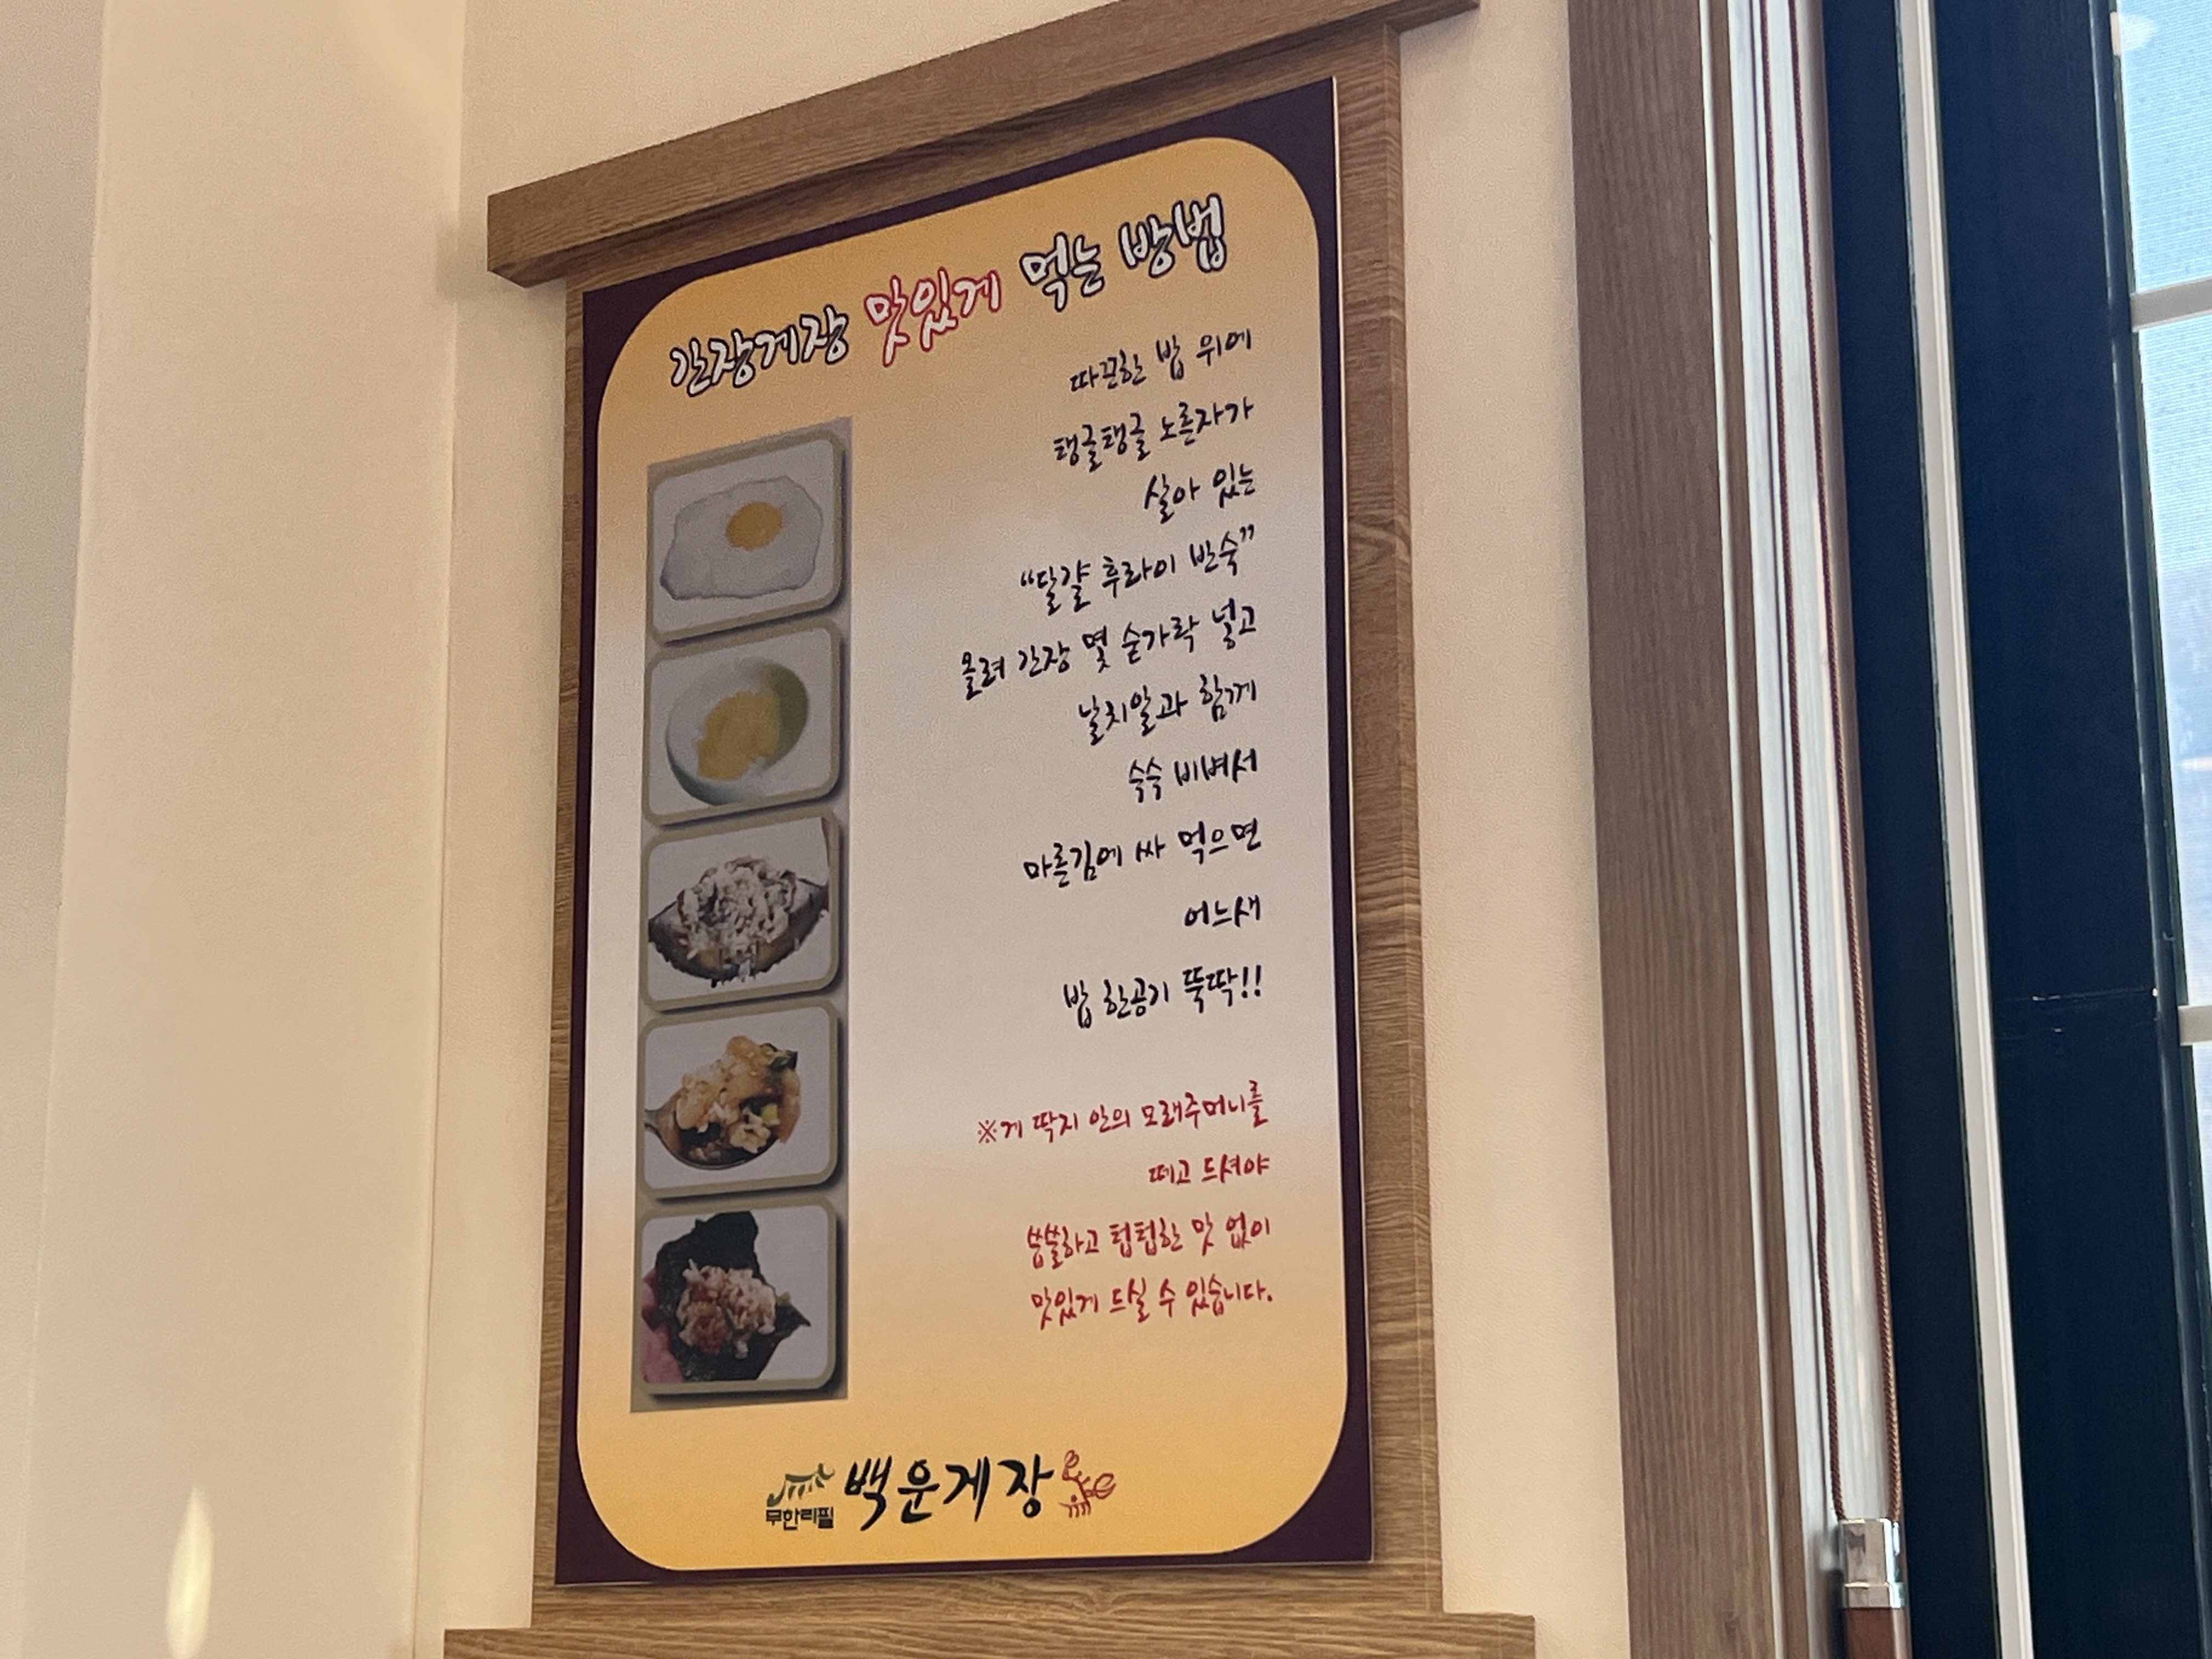 간장게장 맛있게 먹는 방법
따끈한 밥 위에
탱글탱글 노른자가
살아 있는
“달걀 후라이 반숙”
올려 간장 몇 숟가락 넣고
날치알과 함께
슥슥 비벼서
마른김에 싸 먹으면
어느새
밥 한공기 뚝딱!!
※게 딱지 안의 모래주머니를
떼고 드셔야
쌉쌀하고 텁텁한 맛 없이
맛있게 드실 수 있습니다.
무한리필 백운게장